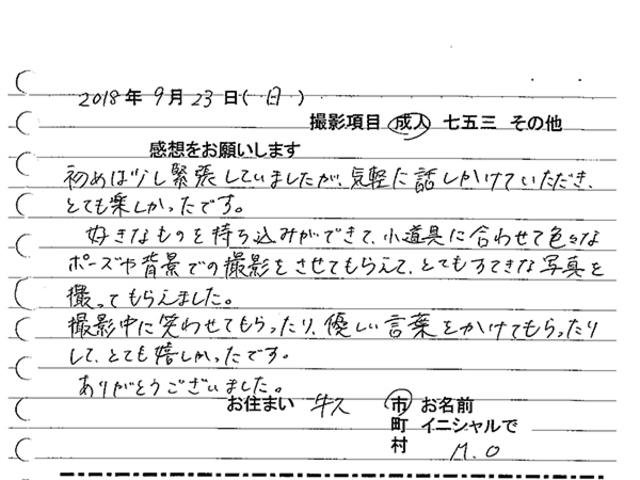 2018年 9月 23日(日)
撮影項目 成人 七五三 その他
感想をお願いします
初めは少し緊張していましたが、気軽に話しかけていただき、
とても楽しかったです。
好きなものを持ち込みができて、小道具に合わせて色々な
ポーズや背景での撮影をさせてもらえて、とてもすてきな写真を
撮ってもらえました。
撮影中に笑わせてもらったり、優しい言葉をかけてもらったり
して、とても嬉しかったです。
ありがとうございました。
お住まい 牛久 市 お名前
町 イニシャルで
村 M.O